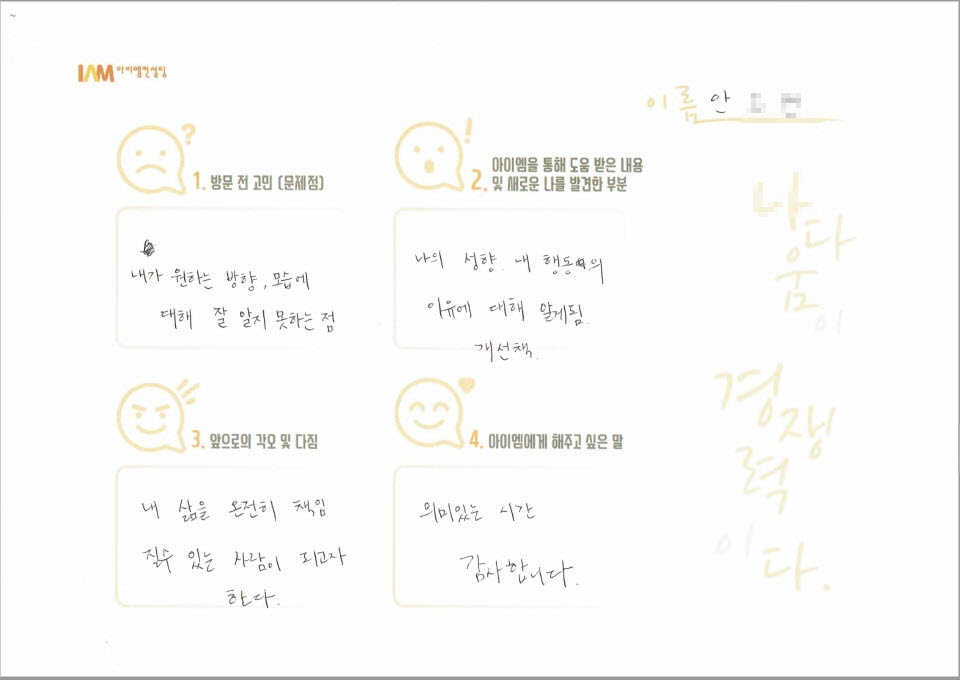 IAM 아이엠컨설팅
이름 안
1. 방문 전 고민 (문제점)
내가 원하는 방향, 모습에
대해 잘 알지 못하는 점
2. 아이엠을 통해 도움 받은 내용
및 새로운 나를 발견한 부분
나의 성향. 내 행동의
이유에 대해 알게됨.
개선책.
3. 앞으로의 각오 및 다짐
내 삶을 온전히 책임
질수 있는 사람이 되고자
한다.
4. 아이엠에게 해주고 싶은 말
의미있는 시간
감사합니다.
나다
움이
경쟁
력
이다.